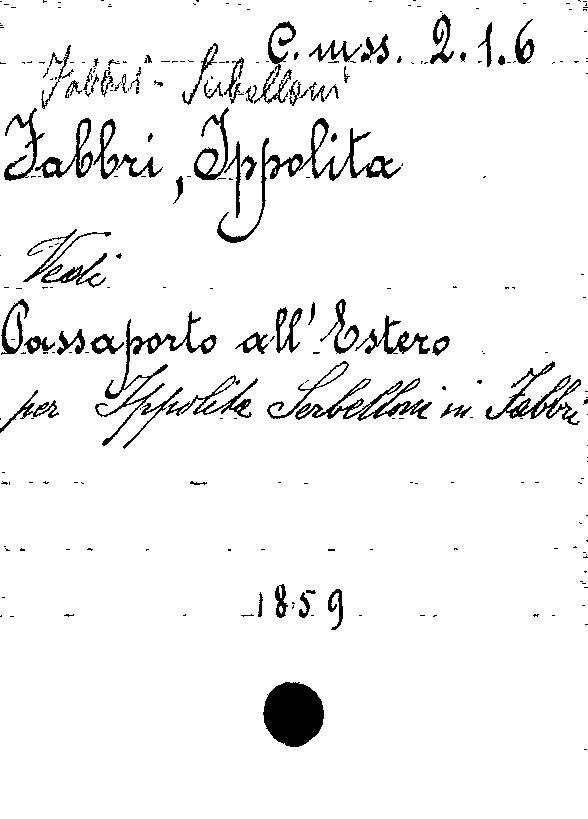 C. mss. 2.1.6
Fabbri - Serbelloni
Fabbri, Ippolita
Vedi
Passaporto all'Estero
per Ippolita Serbelloni in Fabbri
1859